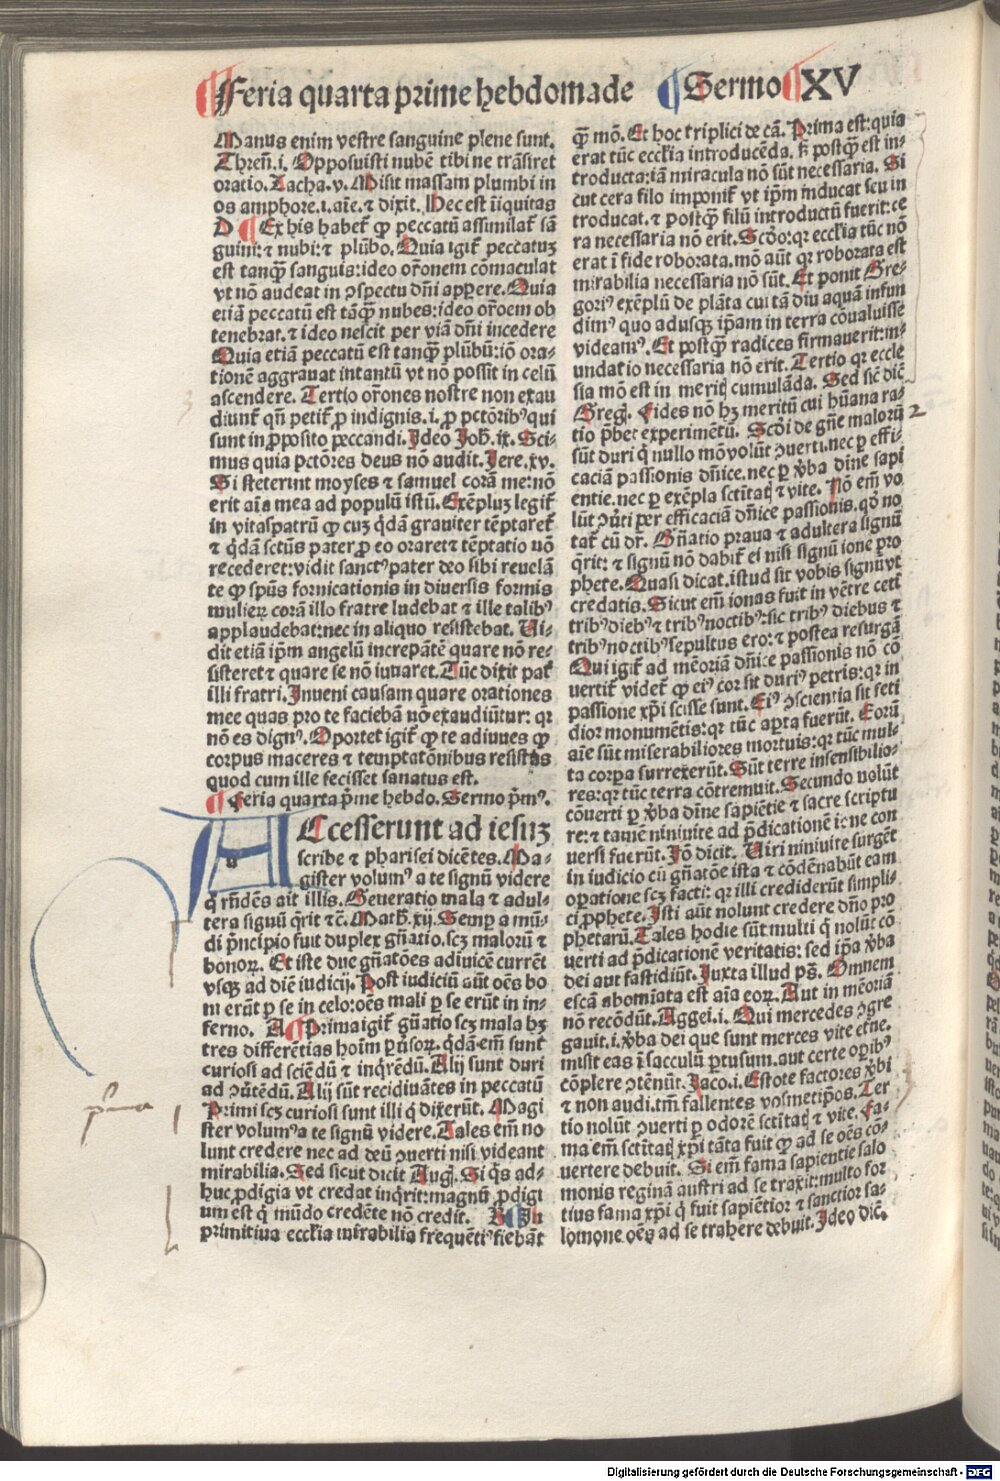 Feria quarta prime hebdomade Sermo XV
Manus enim vestre sanguine plene sunt.
Threñ. i. Opposuisti nubē tibi ne trāsiret
oratio. Zacha. v. Misit massam plumbi in
os amphore. i. aīe. ⁊ dixit. Hec est īiquitas
D Ex his habet̄ ꝙ peccatū assimilat̄ sā
guini: ⁊ nubi: ⁊ plūbo. Quia igit̄ peccatuꝫ
est tanqꝫ sanguis: ideo or̄onem cōmaculat
vt nō audeat in ↄspectu dn̄i apꝑere. Quia
etiā peccatū est tāqꝫ nubes: ideo or̄oem ob
tenebrat. ⁊ ideo nescit per viā dn̄i incedere
Quia etiā peccatū est tanqꝫ plūbū: iō ora-
tionē aggrauat intantū vt nō possit in celū
ascendere. Tertio or̄ones nostre non exau
diunt̄ qn̄ petit̄ ꝓ indignis. i. ꝓ pctōribꝰ qui
sunt in ꝓposito peccandi. Ideo Joh̄. ix. Sci-
mus quia pctōres deus nō audit. Jere. xv.
Si steterint moyses ⁊ samuel corā me: nō
erit aīa mea ad populū istū. Exēpluꝫ legit̄
in vitaspatrū ꝙ cuꝫ q̄dā grauiter tēptaret̄
⁊ q̄dā sctūs pater ꝓ eo oraret ⁊ tēptatio nō
recederet: vidit sanctꝰ pater deo sibi reuelā
te ꝙ spūs fornicationis in diuersis formis
mulieꝝ corā illo fratre ludebat ⁊ ille talibꝰ
applaudebat: nec in aliquo resistebat. Vi-
dit etiā ip̄m angelū increpātē quare nō re-
sisteret ⁊ quare se nō iuuaret. Tūc dixit pat̄
illi fratri. Inueni causam quare orationes
mee quas pro te faciebā nō exaudiūtur: qꝛ
nō es dignꝰ. Oportet igit̄ ꝙ te adiuues ꝙ
corpus maceres ⁊ temptatōnibus resistas
quod cum ille fecisset sanatus est.
Feria quarta p̄me hebdo. Sermo p̄mꝰ.
ACcesserunt ad iesuꝫ
scribe ⁊ pharisei dicētes. Ma-
gister volumꝰ a te signū videre
q̄ rn̄dēs ait illis. Generatio mala ⁊ adul-
tera signū q̄rit ⁊c̄. Math̄. xij. Semꝑ a mū-
di p̄ncipio fuit duplex gn̄atio. scꝫ malorū ⁊
bonoꝝ. Et iste due gn̄atōes adiuicē currēt
vsqꝫ ad diē iudicij. Post iudiciū aūt oēs bo
ni erūt ꝑ se in celo: oēs mali ꝑ se erūt in in-
ferno. A Prima igit̄ gn̄atio scꝫ mala hꝫ
tres differētias hoīm ꝑuersoꝝ. q̄dā em̄ sunt
curiosi ad sciēdū ⁊ inq̄rēdū. Alij sunt duri
ad ↄu̇tēdū. Alij sūt recidiuātes in peccatū
Primi scꝫ curiosi sunt illi q̄ dixerūt. Magi
ster volumꝰ a te signū videre. Tales em̄ no
lunt credere nec ad deū ↄuerti nisi videant
mirabilia. Sed sicut dicit Augꝰ. Si q̄s ad-
huc ꝓdigia vt credat inq̄rit: magnū ꝓdigi
um est q̄ mūdo credēte nō credit. B In
primitiua ecclīa mirabilia frequētiꝰ fiebāt
qꝫ mō. Et hoc triplici de cā. Prima est: quia
erat tūc ecclīa introducēda. sꝫ postqꝫ est in-
troducta: iā miracula nō sūt necessaria. Si
cut cera filo imponit̄ vt ip̄m inducat seu in
troducat. ⁊ postqꝫ filū introductū fuerit: ce
ra necessaria nō erit. Scd̄o: qꝛ ecclīa tūc nō
erat ī fide roborata. mō aūt qꝛ roborata est
mirabilia necessaria nō sūt. Et ponit Gre-
goriꝰ exēplū de plāta cui tā diu aquā infun
dimꝰ quo adusqꝫ ip̄am in terra cōualuisse
videamꝰ. Et postqꝫ radices firmauerit: in-
undatio necessaria nō erit. Tertio qꝛ eccle
sia mō est in meritꝭ cumulāda. Sed sic̄ dic̄
Gregꝰ. Fides nō hꝫ meritū cui hūana ra-
tio p̄bet experimētū. Scd̄i de gn̄e malorū
sūt duri q̄ nullo mō volūt ↄuerti. nec ꝑ effi-
caciā passionis dn̄ice. nec ꝑ v̄ba diīne sapi
entie. nec ꝑ exēpla sctītatꝭ ⁊ vite. Nō em̄ vo
lūt ↄu̇ti per efficaciā dn̄ice passionis. qd̄ no
tat̄ cū dr̄. Gn̄atio praua ⁊ adultera signū
q̄rit: ⁊ signū nō dabit̄ ei nisi signū ione pro
phete. Quasi dicat. istud sit vobis signū vt
credatis. Sicut em̄ ionas fuit in vētre ceti
tribꝰ diebꝰ ⁊ tribꝰ noctibꝰ: sic tribꝰ diebus ⁊
tribꝰ noctibꝰ sepultus ero: ⁊ postea resurgā
Qui igit̄ ad mēoriā dn̄ice passionis nō cō
uertit̄ videt̄ ꝙ eiꝰ cor sit duriꝰ petris: qꝛ in
passione xp̄i scisse sunt. Eiꝰ ↄscientia sit feti
dior monumētis: qꝛ tūc aꝑta fuerūt. Eorū
aīe sūt miserabiliores mortuis: qꝛ tūc mul-
ta corꝑa surrexerūt. Sūt terre insensibilio-
res: qꝛ tūc terra cōtremuit. Secundo nolūt
cōuerti ꝑ v̄ba diīne sapiētie ⁊ sacre scriptu
re: ⁊ tamē niniuite ad p̄dicationē ione con
uersi fuerūt. Iō dicit. Viri niniuite surgēt
in iudicio cū gn̄atōe ista ⁊ cōdēnabūt eam
oꝑatione scꝫ facti: qꝛ illi crediderūt simpli-
ci ꝓphete. Isti aūt nolunt credere dn̄o pro
phetarū. Tales hodie sūt multi q̄ nolūt cō
uerti ad p̄dicationē veritatis: sed ip̄a v̄ba
dei aut fastidiūt. Juxta illud ps̄. Omnem
escā abomīata est aīa eoꝝ. Aut in mēoriā
nō recōdūt. Aggei. i. Qui mercedes ↄgre
gauit. i. v̄ba dei que sunt merces vite etn̄e.
misit eas ī sacculū ꝑtusum. aut certe oꝑibꝰ
cōplere ↄtēnūt. Jaco. i. Estote factores v̄bi
⁊ non audi. tm̄ fallentes vosmetip̄os. Ter
tio nolūt ↄuerti ꝑ odorē sctītatꝭ ⁊ vite. Fa-
ma em̄ sctītatꝭ xp̄i tāta fuit ꝙ ad se oēs cō-
uertere debuit. Si em̄ fama sapientie salo
monis reginā austri ad se traxit: multo for
tius fama xp̄i q̄ fuit sapiētior ⁊ sanctior sa-
lomone oēs ad se trahere debuit. Ideo dic̄.
2
pma
Digitalisierung gefördert durch die Deutsche Forschungsgemeinschaft - DFG